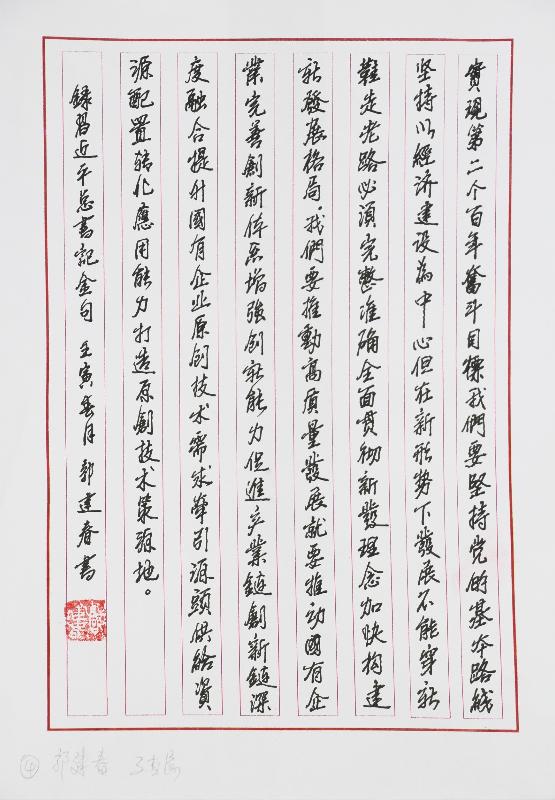 實現第二个百年奮斗目標我們要堅持党的基本路线
坚持以經济建设為中心但在新形势下發展不能穿新
鞋走老路必須完整准确全面贯彻新發理念加快构建
新發展格局。我們要推動高质量發展就要推动國有企
業完善創新体系增強創新能力促進产業鏈創新鏈深
度融合提升國有企业原创技术需求牽引源頭供給資
源配置轉化應用能力打造原創技术策源地。
錄習近平总書記金句 壬寅春月 郭建春書
④ 郭建春